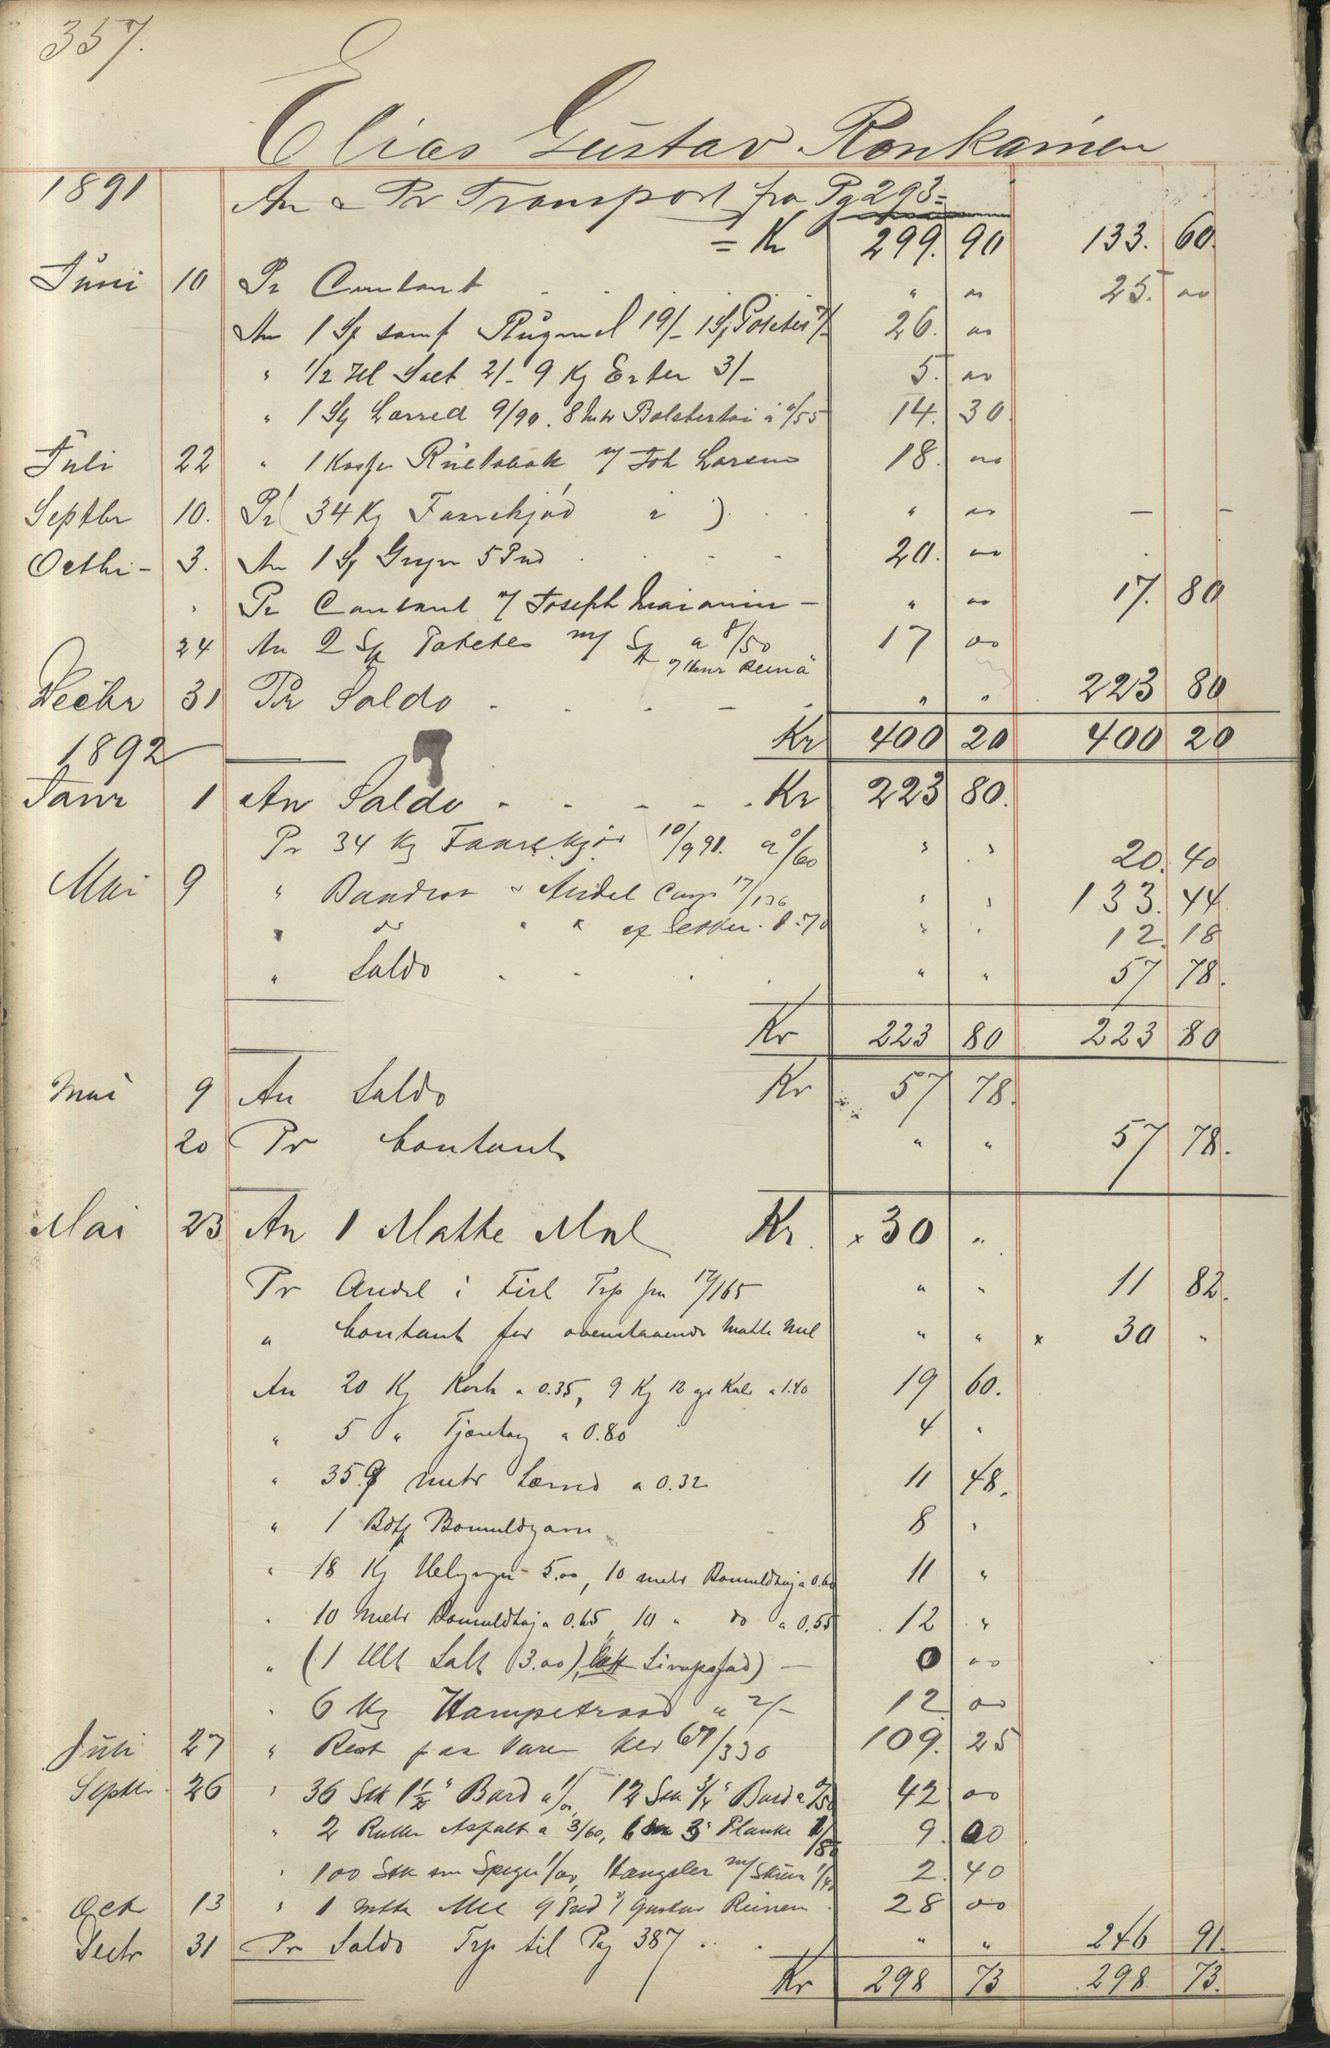 357.
Elias Gustav Ronkainen
1891 An & Pr Transport fra Pg 293 =
= Kr 299. 90 133. 60.
Juni 10 Pr Contant . . . . . " " 25. 00
An 1 Sk samf Rugmel 19/- 1 Sk Poteter 7/- 26. 00
" 1/2 Hl Salt 2/- 9 Kg Erter 3/- 5. 00
" 1 Sk Lærred 9/90. 8 mtr Bolstertøi a 0/55 14. 30
Juli 22 " 1 Kasse Rultobak v/ Joh Larsen 18. 00
Septbr 10. Pr ( 34 Kg Faarekjød a ) . . . " 00 - -
Octbr - 3. An 1 Sk Gryn 5 Pud . . . - 20. 00
" Pr Contant v/ Joseph - " 00 17. 80
24 An 2 Sk Poteter m/ Sk a 8/50 17 00
v/ Henr Reinä
Decbr 31 Pr Saldo - . . - - . " " 223 80
Kr 400 20 400 20
1892
Janr 1 An Saldo - - - - - . Kr 223 80.
Pr 34 Kg Faarekjød 10/9 91. a 0/60 " " 20. 40
Mai 9 " " Andel Comp 17/136 " " 133. 44
" do " " af 8.70 " " 12. 18
" Saldo . . . . " " 57 78.
Kr 223 80 223 80
Mai 9 An Saldo Kr 57 78.
20 Pr Contant " " 57 78.
Mai 23 An 1 Matte Mel Kr. x 30 "
Pr Andel i Fisk Trp fra 17/165 " " 11 82.
" Contant for ovenstaaende Matte Mel " " x 30 "
An 20 Kg Kork a 0.35, 9 Kg 12 a 1.40 19 60.
" 5 " Tjæretaug a 0.80 4 "
" 35.9 metr Lærred a 0.32 11 48.
" 1 Bdt Bomuldgarn 8 "
" 18 Kg Helgryn - 5.00, 10 metr Bomuldtøj a 0.60 11 "
" 10 metr Bomuldtøj a 0.65, 10 " do a 0.55 12 "
" (1 Hlt Salt (3.00), Sirupsfad) - 0 00
" 6 Kg Hampetraad a 2/- 12 00
Juli 27 " Rest paa Varer 67/330 109. 25
Septbr 26 " 36 Stk 1 1/2" Bord a 1/00 12 Stk 3/4" Bord a 0/50 42 00
" 2 Ruller Asfalt a 3/60, 6 3" Planke 1/80 9. 00
" 100 Stk sm Spiger 1/00, Hængsler m/ Skruer 1/40 2. 40
Octr 13 " 1 Mtte Mel 9 Pud v/ Gustav Reinen . 28 00
Decbr 31 Pr Saldo Trp til Pg 387 . . . " " 246 91.
Kr 298 73 298 73.